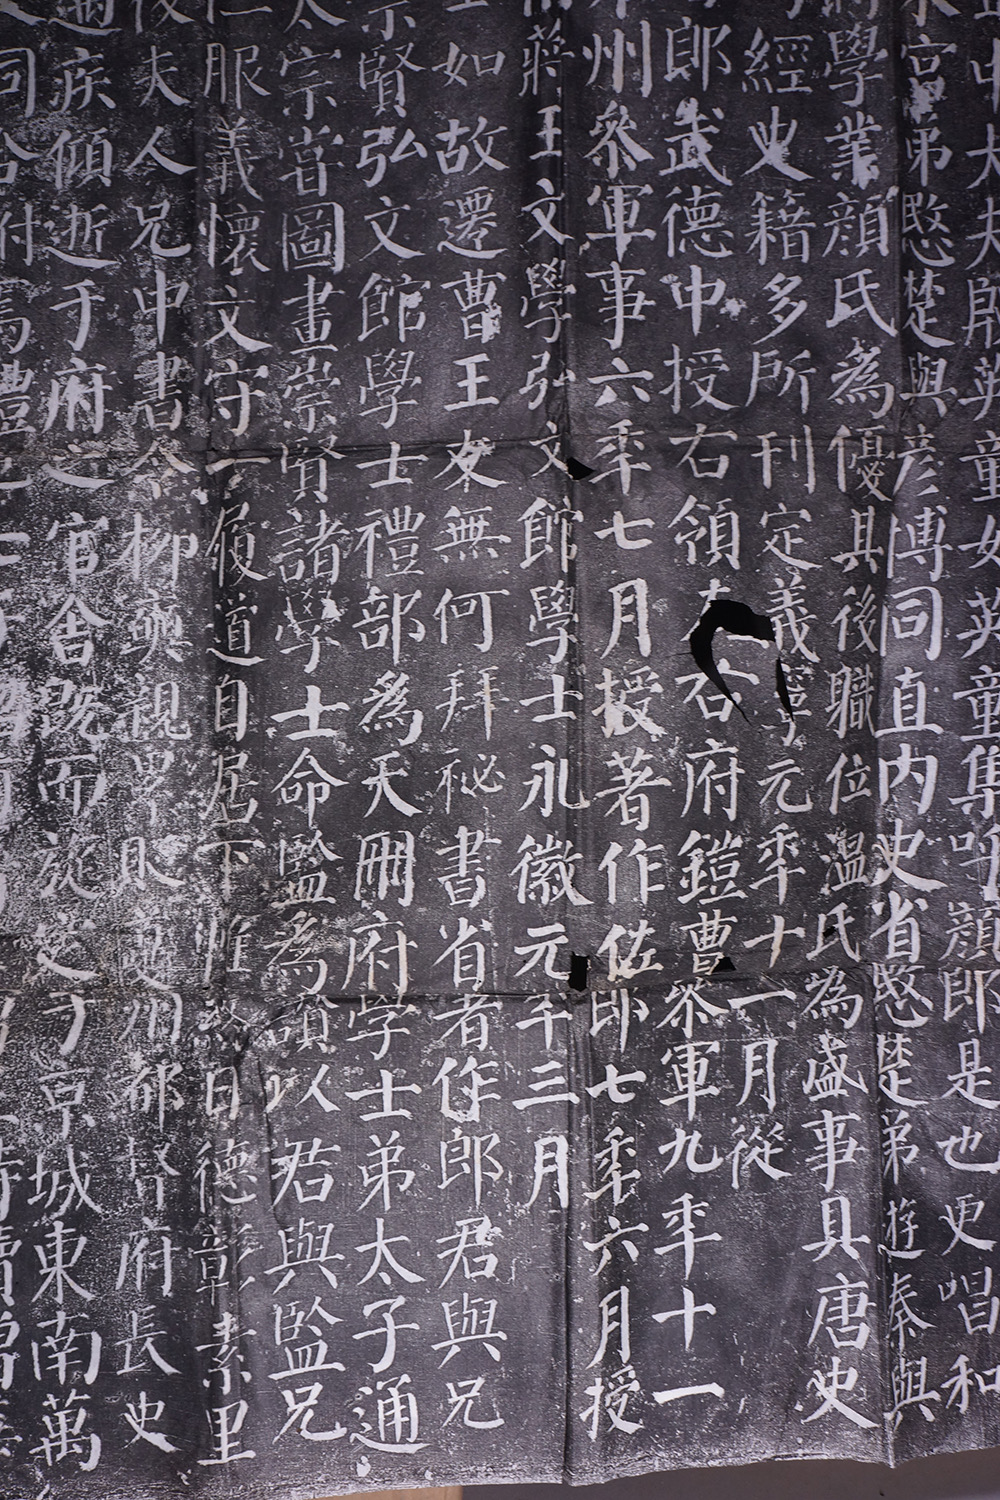 中大夫殷英童女英童集呼顏郎是也更唱和
宮弟愍楚與彥博同直內史省愍楚弟遊秦與
學業顏氏為優其後職位溫氏為盛事具唐史
經史籍多所刊定義寧元年十一月從
郎武德中授右領左右府鎧曹參軍九年十一
州參軍事六年七月授著作佐郎七年六月授
蔣王文學弘文館學士永徽元年三月
如故遷曹王友無何拜秘書省著作郎君與兄
賢弘文館學士禮部為天冊府學士弟太子通
太宗嘗圖畫崇賢諸學士命監為讚以君與監兄
服義懷文守一履道自居下帷終日德彰素里
後夫人兄中書令柳奭親累貶夔州都督府長史
疾傾逝于府之官舍既而旋窆于京城東南萬
同合祔焉禮